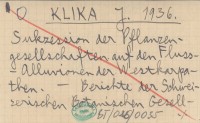 O KLIKA J. 1936.
Sukzession der Pflanzen-
gesellschaften auf den Fluss-
Alluvionen der Westkarpa-
then. — Berichte der Schwei-
zerischen Botanischen Gesell-
BT/046/0055